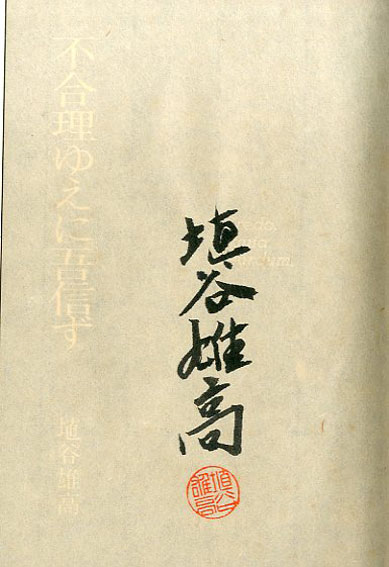 埴谷雄高
埴谷
雄高
不合理ゆえに吾信ず
埴谷雄高